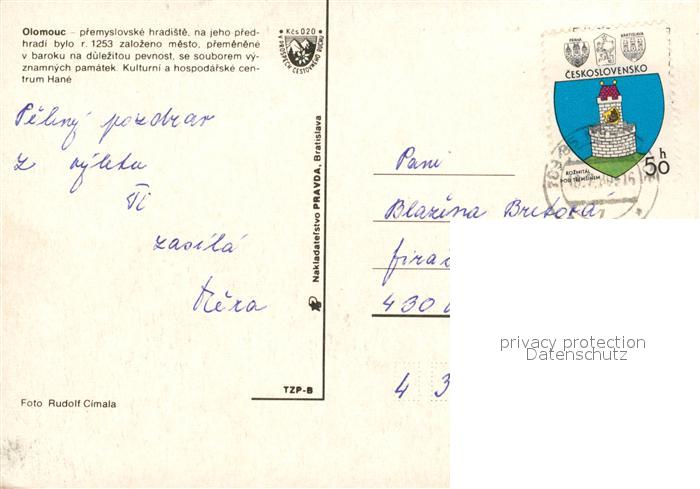 Olomouc – přemyslovské hradiště, na jeho před-
hradí bylo r. 1253 založeno město, přeměněné
v baroku na důležitou pevnost, se souborem vý-
znamných památek. Kulturní a hospodářské cen-
trum Hané
Kčs 0,20
V PROSPĚCH CESTOVNÉHO RUCHU
Pěkný pozdrav
z výletu
Ti
zasílá
Věra
Foto Rudolf Címala
TZP-B
Nakladateľstvo PRAVDA, Bratislava
PRAHA
BRATISLAVA
ČESKOSLOVENSKO
ROŽMITÁL
POD TŘEMŠÍNEM
50 h
Paní
Blažena
430
4 3
privacy protection
Datenschutz